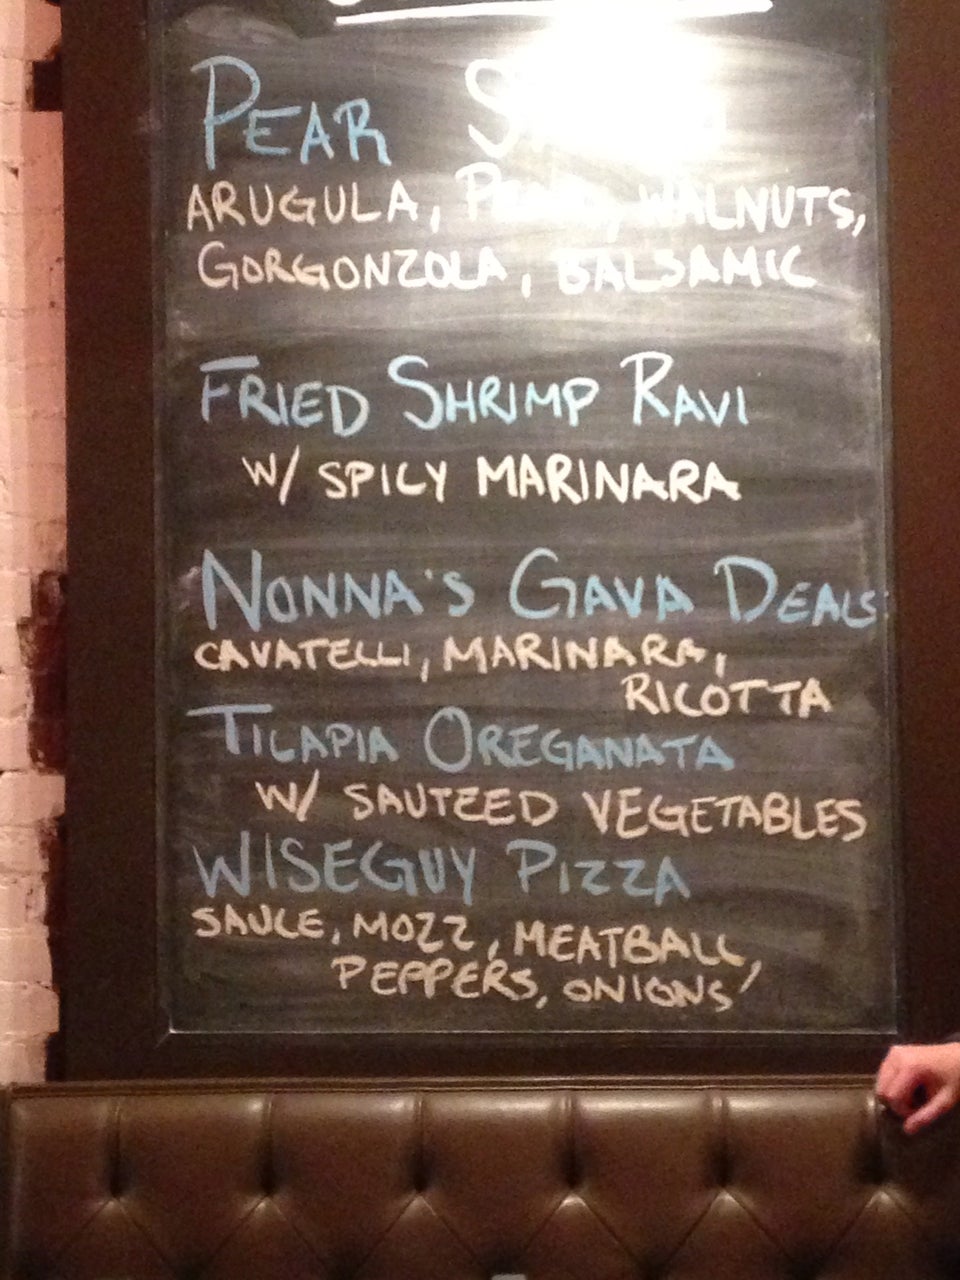 PEAR
ARUGULA, WALNUTS,
GORGONZOLA, BALSAMIC
FRIED SHRIMP RAVI
W/ SPICY MARINARA
NONNA'S GAVA DEALS
CAVATELLI, MARINARA,
RICOTTA
TILAPIA OREGANATA
W/ SAUTEED VEGETABLES
WISEGUY PIZZA
SAUCE, MOZZ, MEATBALL,
PEPPERS, ONIONS